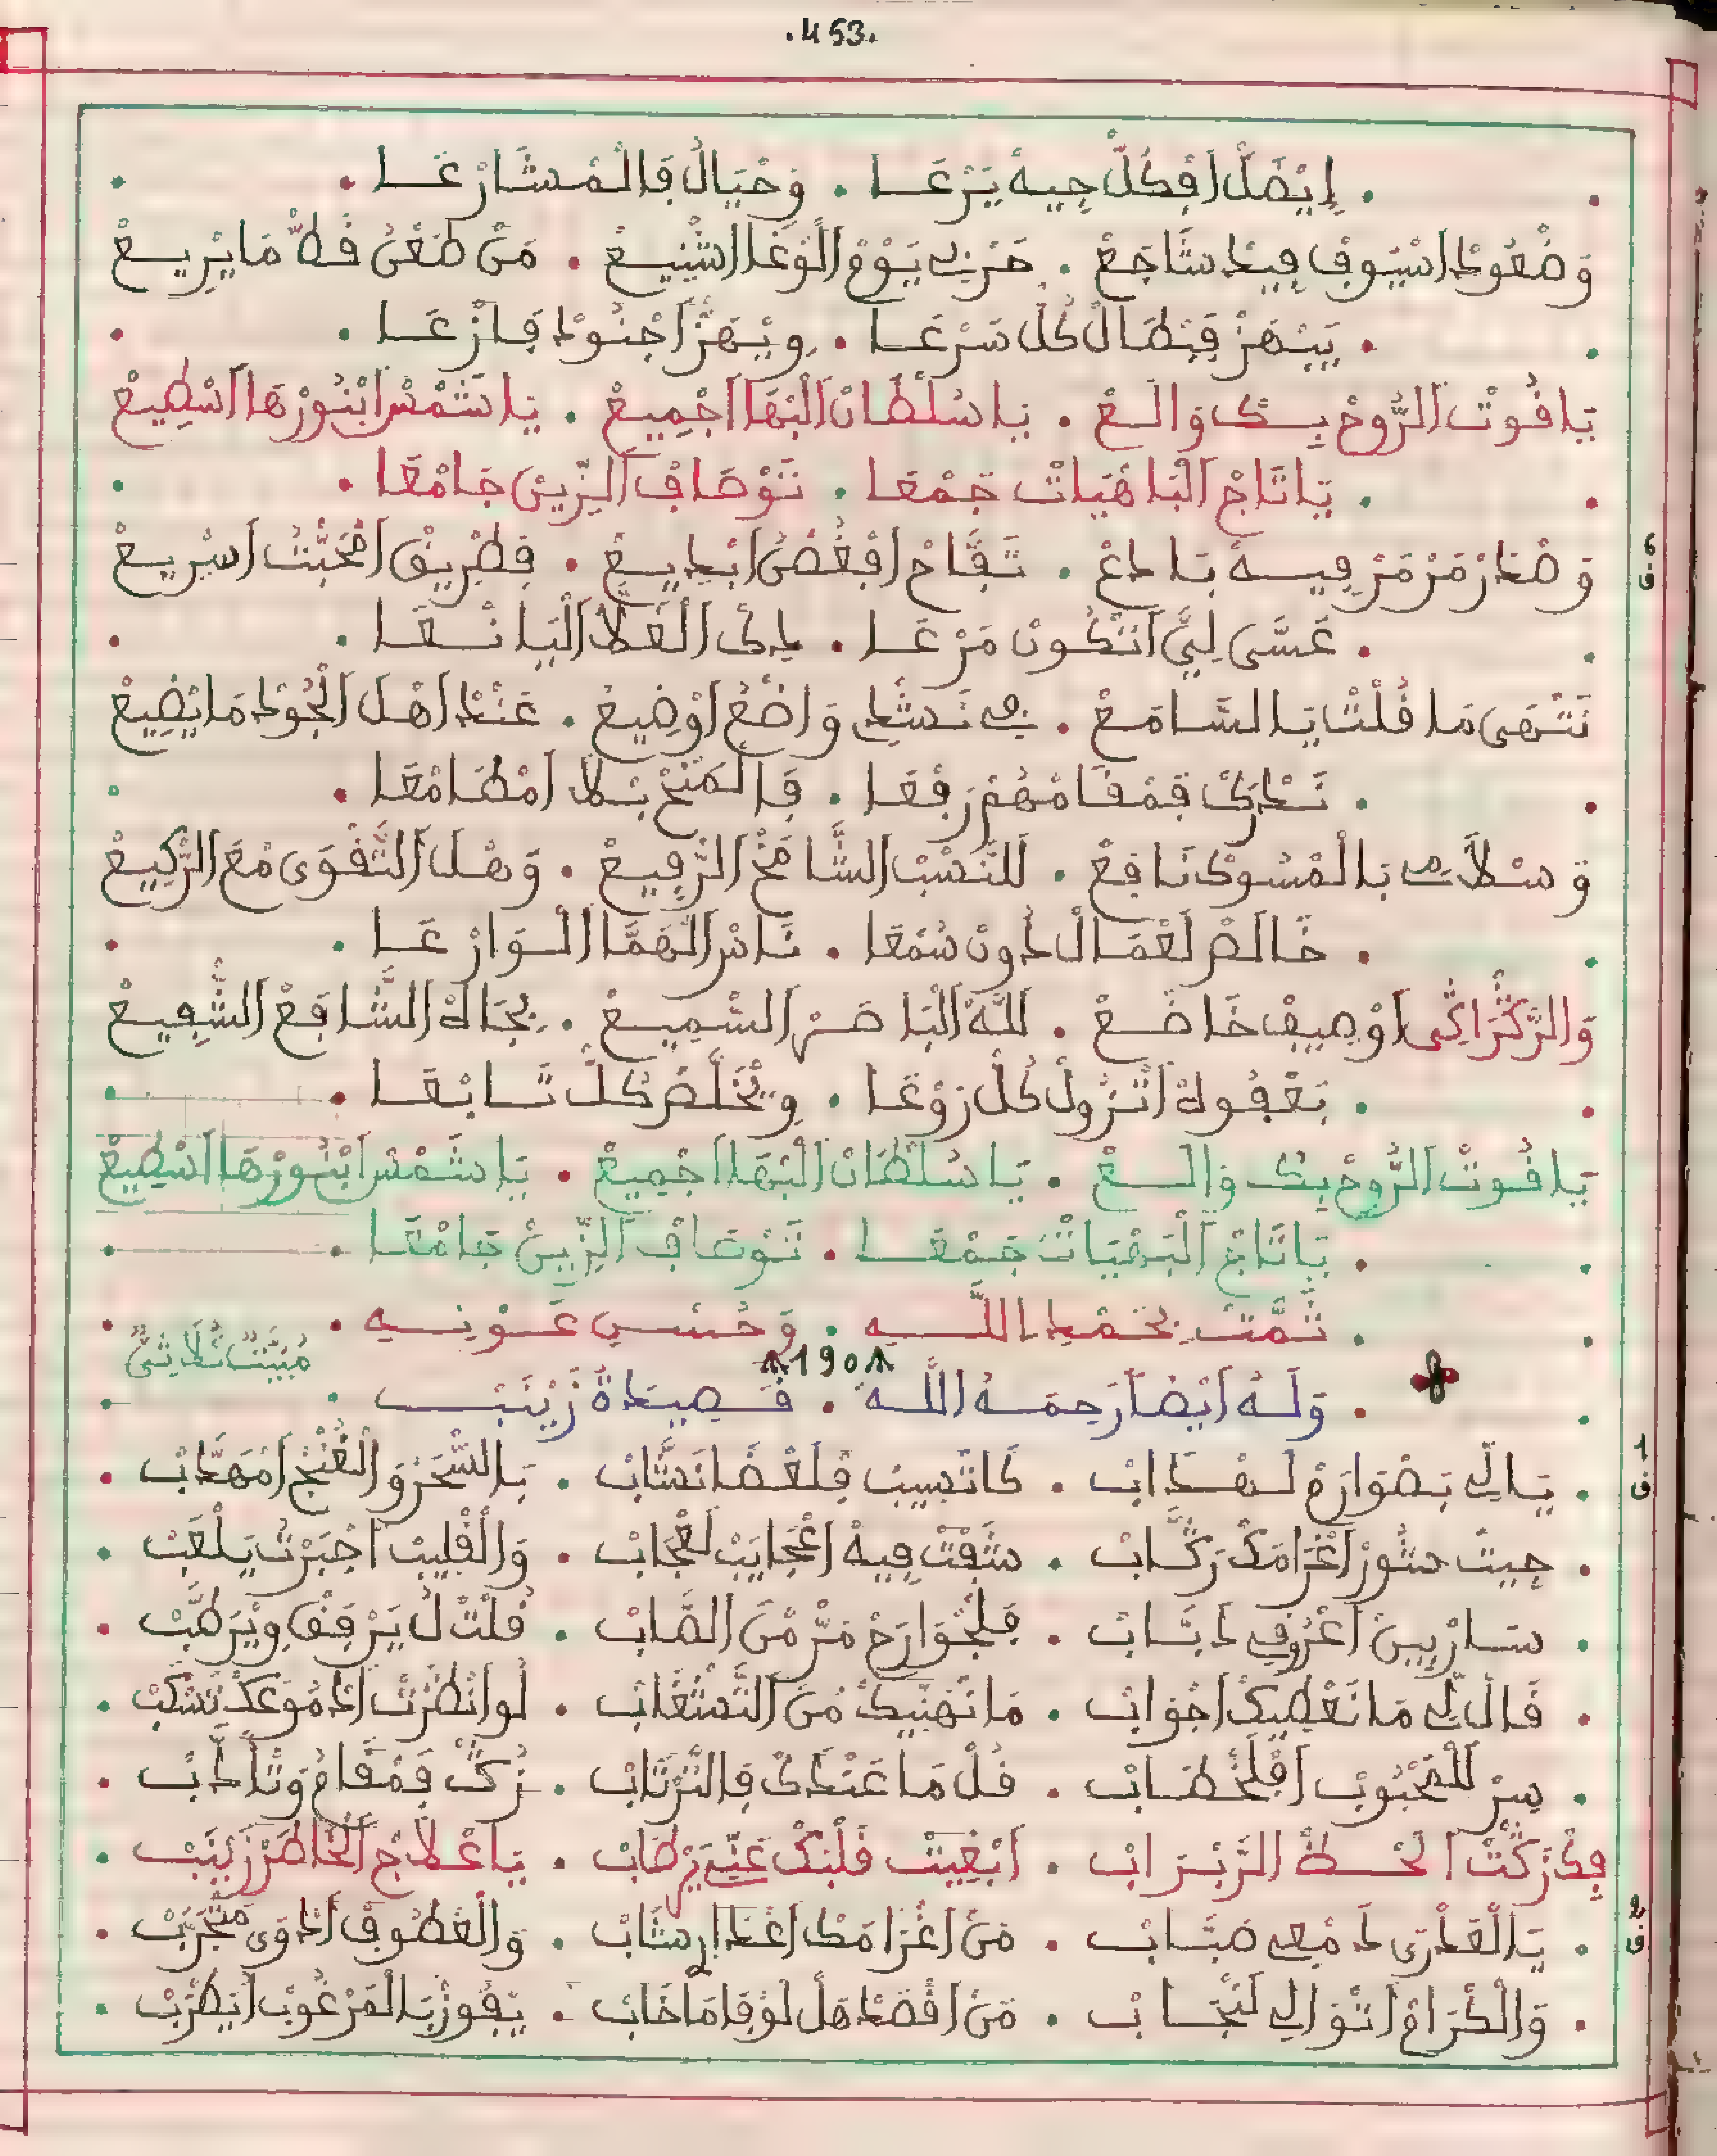 .453.
إِيْضَلْ اَفْكُلّْ جِيهْ يَرْعَا . وَخْيَالُ فَالْمْشَارْعَا
وَضْعُودْ اَسْيُوفْ فِيدْ شَاجَعْ . حَرْبِي يَوْمْ الْوْغَا اشْنِيعْ . مَنْ طَعْنُ قَطّْ مَا يْرِيعْ
يَنْهَزْ فَبْطَالْ كُلّْ سَرْعَا . وِيْهَزّْ اَجْنُودْ فَازْعَا
يَا قُوتْ الرُّوحْ بِيكْ وَالَعْ . يَا سُلْطَانْ الْبْهَا اجْمِيعْ . يَا شَمْسْ ابْنُورْهَا اسْطِيعْ
يَا تَاجْ الْبَاهْيَاتْ جَمْعَا . نَوْصَافْ الزِّينْ جَامْعَا
6
ف
وَصْدَرْ مَرْمَرْ فِيهْ بَادَعْ . تَفَّاحْ اَفْغُصْنُ ابْدِيعْ . فَطْرِيقْ امْحَبّْتُ اسْرِيعْ
عَسَّى لِيَّ اَتْكُونْ مَرْعَا . دِيكْ الْغَلَّا الْيَانْعَا
نَتْهَى مَا قُلْتْ يَا السَّامَعْ . بِي نَنْشَدْ وَاضَعْ اوْضِيعْ . عَنْدْ اَهْلْ الْجُودْ مَا يْضِيعْ
نَدْرَكْ فَمْقَامْهُمْ رَفْعَا . فَالْمَنْحْ بْلَا اَمْطَامْعَا
وَسْلَامِي بَالْمْسُوكْ نَافَعْ . لَلنَّسْبْ الشَّامَخْ الرّْفِيعْ . وَهْلْ التَّقْوَى مْعَ الرّْكِيعْ
خَالَصْ لَعْمَالْ دُونْ سُمْعَا . نَاسْ الْهَمَّا الْوَارْعَا
وَالرَّكْرَاكِي اوْصِيفْ خَاضَعْ . لَلَّهْ الْنَاصَرْ السّْمِيعْ . بْجَاهْ الشَّافَعْ الشّْفِيعْ
بَعْفُوهْ اَتْزُولْ كُلّْ زَوْعَا . وِيْخَلَّصْ كُلّْ تَابْعَا
يَا قُوتْ الرُّوحْ بِيكْ وَالَعْ . يَا سُلْطَانْ الْبْهَا اجْمِيعْ . يَا شَمْسْ ابْنُورْهَا اسْطِيعْ
يَا تَاجْ الْبَهْيَاتْ جَمْعَا . نَوْصَافْ الزِّينْ جَامْعَا
تَمَّتْ بِحَمْدِ اللَّهِ . وَحُسْنِ عَوْنِهِ
190
مُبَيَّتْ ثُلَاثِي
وَلَهُ اَيْضًا رَحِمَهُ اللَّه . قَصِيدَةُ زَيْنَبْ
1
ف
يَالِّي بَصْوَارَمْ لَهْدَابْ . كَاتْسِيبْ فَلَعْضَا نَشَّابْ . بَالسّْحَرْ وَالْغُنْجْ اَمْهَدَّبْ
جِيتْ نَشْوَرْ اغْرَامَكْ رَكَّابْ . شَفْتْ فِيهْ اعْجَايَبْ لَعْجَابْ . وَالْقْلِيبْ اجْبَرْتُ يَلْعَبْ
سَارْيِينْ اعْرُوقِ دَبَّابْ . فَلَجْوَارَحْ مَرّْ مْنَ الصَّابْ . قُلْتْ لُ يَرْفَقْ وِيْرَطَّبْ
قَالْ لِي مَا نَعْطِيكْ اجْوَابْ . مَا نْهَنِّيكْ مْنَ التَّشْغَابْ . لُو انْظَرْتْ ادْمُوعَكْ تَسْكَبْ
سِرْ لَلْمَحْبُوبْ اَفْلَخْطَابْ . قُلْ مَا عَنْدَكْ فَالتَّرْتَابْ . زُكّْ فَمْقَامُ وَتَّادَّبْ
فِكْ زَكّْتْ الَحْظْ الرَّبْرَابْ . اَبْغِيتْ قَلْبَكْ عَنِّي يَرْطَابْ . يَا عْلَاجْ الْخَاطَرْ زَيْنَبْ
2
ف
يَا الْعَدْرَى دَمْعِي صَبَّابْ . مَنْ اغْرَامَكْ اعْدَارِ شَابْ . وَالْعْطُوفْ ادْوَى مَتْجَرَّبْ
وَالْكْرَامْ اَتْوَالِي لَنْجَابْ . مَنْ اقْصَدْ هَلْ لَوْفَا مَا خَابْ . يْفُوزْ بَالْمَرْغُوبْ ايْطَرَّبْ